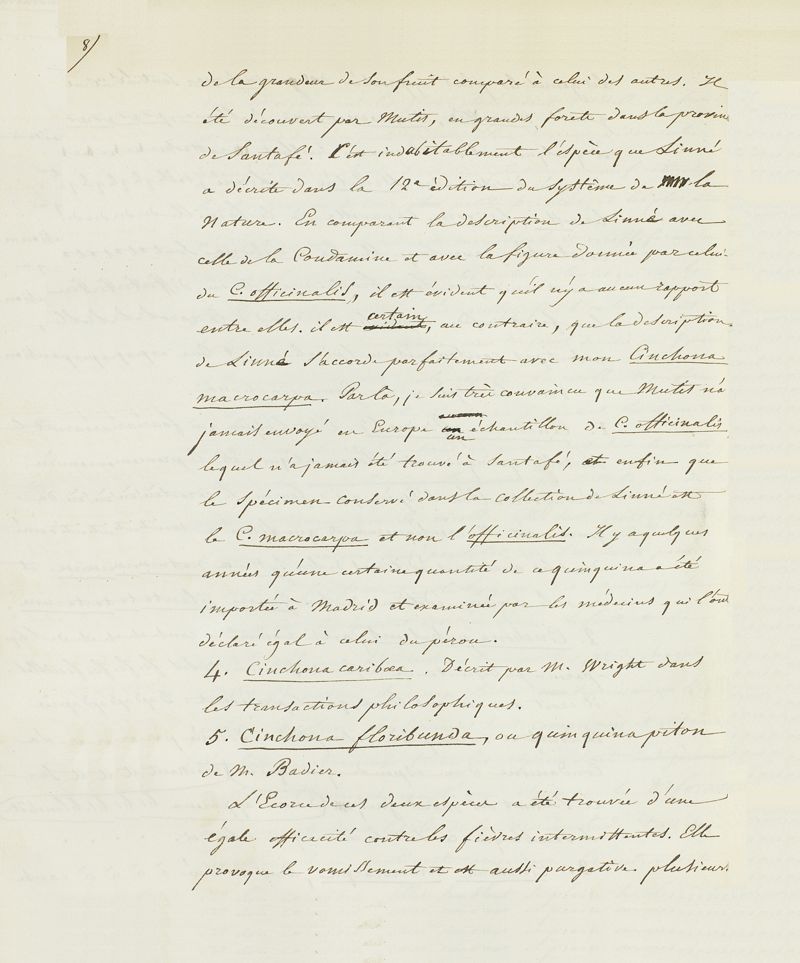 8/
de la grandeur de son fruit comparé à celui des autres. Il
été découvert par Mutis, en grandes forêts dans la provin
de Santafé. C'est indubitablement l'espèce que Linné
a décrite dans la 12e édition du Système de la
Nature. En comparant la description de Linné avec
celle de la Condamine et avec la figure donnée par celui
du C. officinalis, il est évident qu'il n'y a aucun rapport
certain
entre elles. il est evident, au contraire, que la description
de Linné s'accorde parfaitement avec mon Cinchona
macrocarpa. Par là, je suis très convaincu que Mutis n'a
jamais envoyé en Europe un échantillon de C. officinalis
lequel n'a jamais été trouvé à Santafé, et enfin que
le spécimen conservé dans la collection de Linné est
le C. macrocarpa et non l'officinalis. Il y a quelques
années qu'une certaine quantité de ce quinquina a été
importée à Madrid et examinée par les médecins qui l'ont
déclaré égal à celui du pérou.
4. Cinchona caribœa. Décrit par M. Wright dans
les transactions philosophiques.
5. Cinchona floribunda, ou quinquina piton
de M. Badier.
L'Ecorce de ces deux espèces a été trouvée d'une
égale efficacité contre les fièvres intermittentes. Elle
provoque le vomissement et est aussi purgative. plusieurs